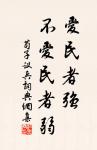 愛民者強
不愛民者弱
荀子議兵詞典網集